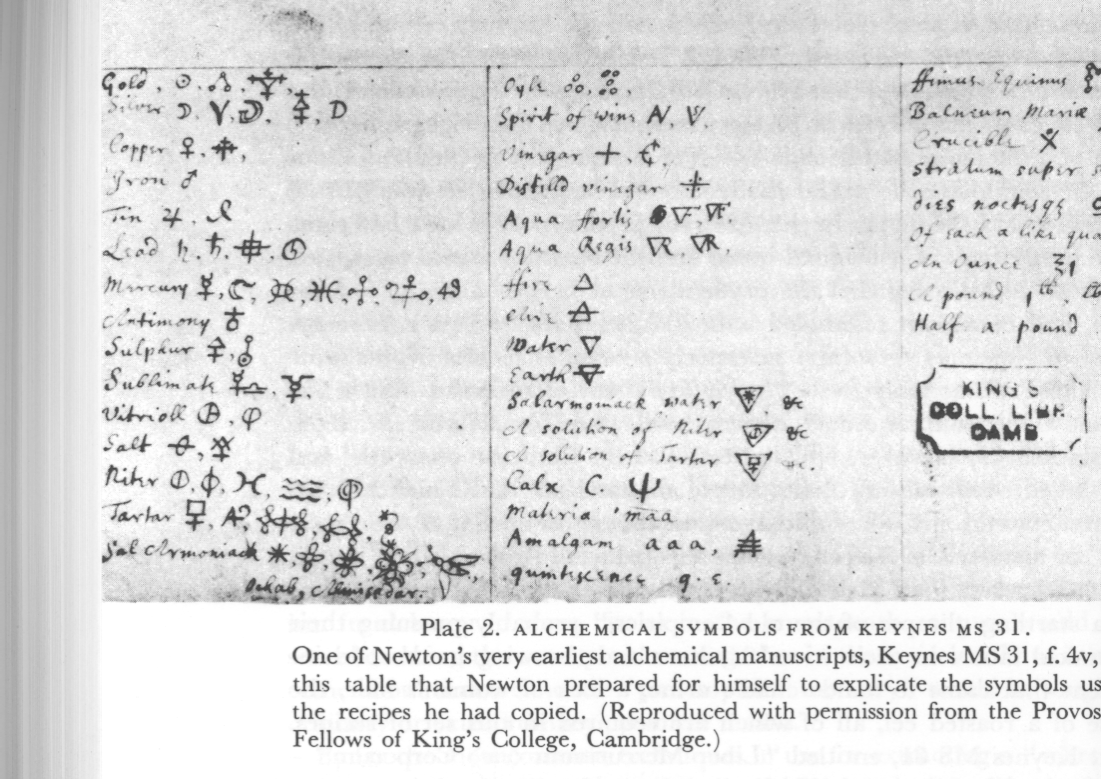 Gold
Silver
Copper
Iron
Tin
Lead
Mercury
Antimony
Sulphur
Sublimate
Vitrioll
Salt
Niter
Tartar
Sal Armoniack
Oyle
Spirit of wine
Vinegar
Distilld vinegar
Aqua ffortis
Aqua Regis
ffire
Aire
Water
Earth
Salarmoniack water &c
A solution of Niter &c
A solution of Tartar &c.
Calx C.
Materia
Amalgam a a a.
quintescence q. e.
ffimus Equinus
Balneum Mariæ
Crucible
Stratum super s
dies noctisqe
Of each a like qua
An Ounce
A pound
Half a pound
KING'S
COLL. LIBR.
CAMB
Plate 2. ALCHEMICAL SYMBOLS FROM KEYNES MS 31.
One of Newton's very earliest alchemical manuscripts, Keynes MS 31, f. 4v,
this table that Newton prepared for himself to explicate the symbols us
the recipes he had copied. (Reproduced with permission from the Provos
Fellows of King's College, Cambridge.)